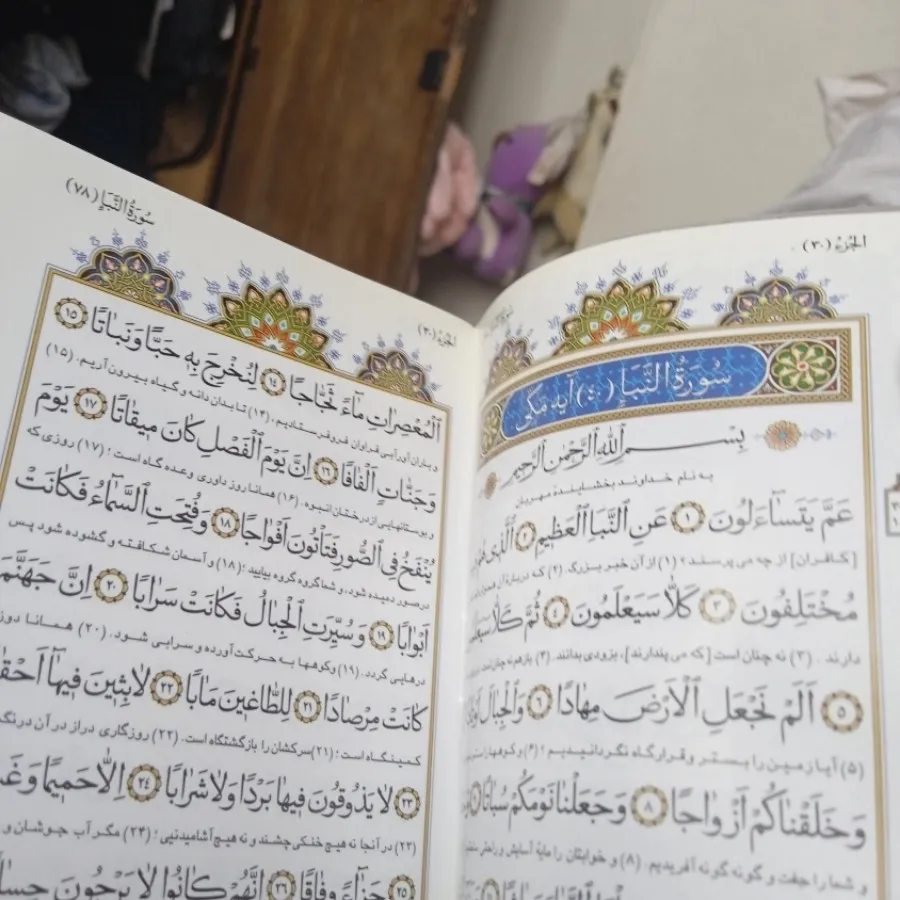 الجزء (٣٠)
سورة النبإ (٤٠) آیه مکی
بِسْمِ ٱللّٰهِ ٱلرَّحْمٰنِ ٱلرَّحِيمِ
به نام خداوند بخشایندهٔ مهربان
عَمَّ يَتَسَاءَلُونَ ١ عَنِ ٱلنَّبَإِ ٱلْعَظِيمِ ٢ ٱلَّذِى هُمْ
[کافران] از چه می پرسند؟ (١) از آن خبر بزرگ. (٢) که دربارهٔ آن
مُخْتَلِفُونَ ٣ كَلَّا سَيَعْلَمُونَ ٤ ثُمَّ كَلَّا سَيَعْلَمُونَ
دارند. (٣) نه چنان است [که می پندارند]، بزودی بدانند. (۴) بازهم نه چنان است
٥ أَلَمْ نَجْعَلِ ٱلْأَرْضَ مِهَادًا ٦ وَٱلْجِبَالَ
(۵) آیا زمین را بستر و قرارگاه نگردانیدیم؟ (۶) و کوهها را
وَخَلَقْنَاكُمْ أَزْوَاجًا ٨ وَجَعَلْنَا نَوْمَكُمْ سُبَاتًا
و شما را جفت و گونه گونه آفریدیم. (٨) و خوابتان را مایهٔ آسایش و راحتی
سورة النبإ (٧٨)
الجزء (٣٠)
ٱلْمُعْصِرَاتِ مَاءً ثَجَّاجًا ١٤ لِنُخْرِجَ بِهِ حَبًّا وَنَبَاتًا ١٥
و باران آور آبی فراوان فرو فرستادیم. (١۴) تا بدان دانه و گیاه بیرون آریم. (١۵)
وَجَنَّاتٍ أَلْفَافًا ١٦ إِنَّ يَوْمَ ٱلْفَصْلِ كَانَ مِيقَاتًا ١٧ يَوْمَ
و بوستانهایی از درختان انبوه. (١۶) همانا روز داوری وعده گاه است؛ (١٧) روزی که
يُنْفَخُ فِى ٱلصُّورِ فَتَأْتُونَ أَفْوَاجًا ١٨ وَفُتِحَتِ ٱلسَّمَاءُ فَكَانَتْ
در صور دمیده شود، و شما گروه گروه بیایید؛ (١٨) و آسمان شکافته و گشوده شود پس
أَبْوَابًا ١٩ وَسُيِّرَتِ ٱلْجِبَالُ فَكَانَتْ سَرَابًا ٢٠ إِنَّ جَهَنَّمَ
درهایی گردد. (١٩) و کوهها به حرکت آورده و سرابی شود. (٢٠) همانا دوزخ
كَانَتْ مِرْصَادًا ٢١ لِلطَّاغِينَ مَآبًا ٢٢ لَابِثِينَ فِيهَا
کمینگاه است؛ (٢١) سرکشان را بازگشتگاه است. (٢٢) روزگاری دراز در آن درنگ
٢٣ لَا يَذُوقُونَ فِيهَا بَرْدًا وَلَا شَرَابًا ٢٤ إِلَّا حَمِيمًا
(٢٣) در آنجا نه هیچ خنکی چشند و نه هیچ آشامیدنیی؛ (٢۴) مگر آب جوشان و
٢٥ جَزَاءً وِفَاقًا ٢٦ إِنَّهُمْ كَانُوا لَا يَرْجُونَ